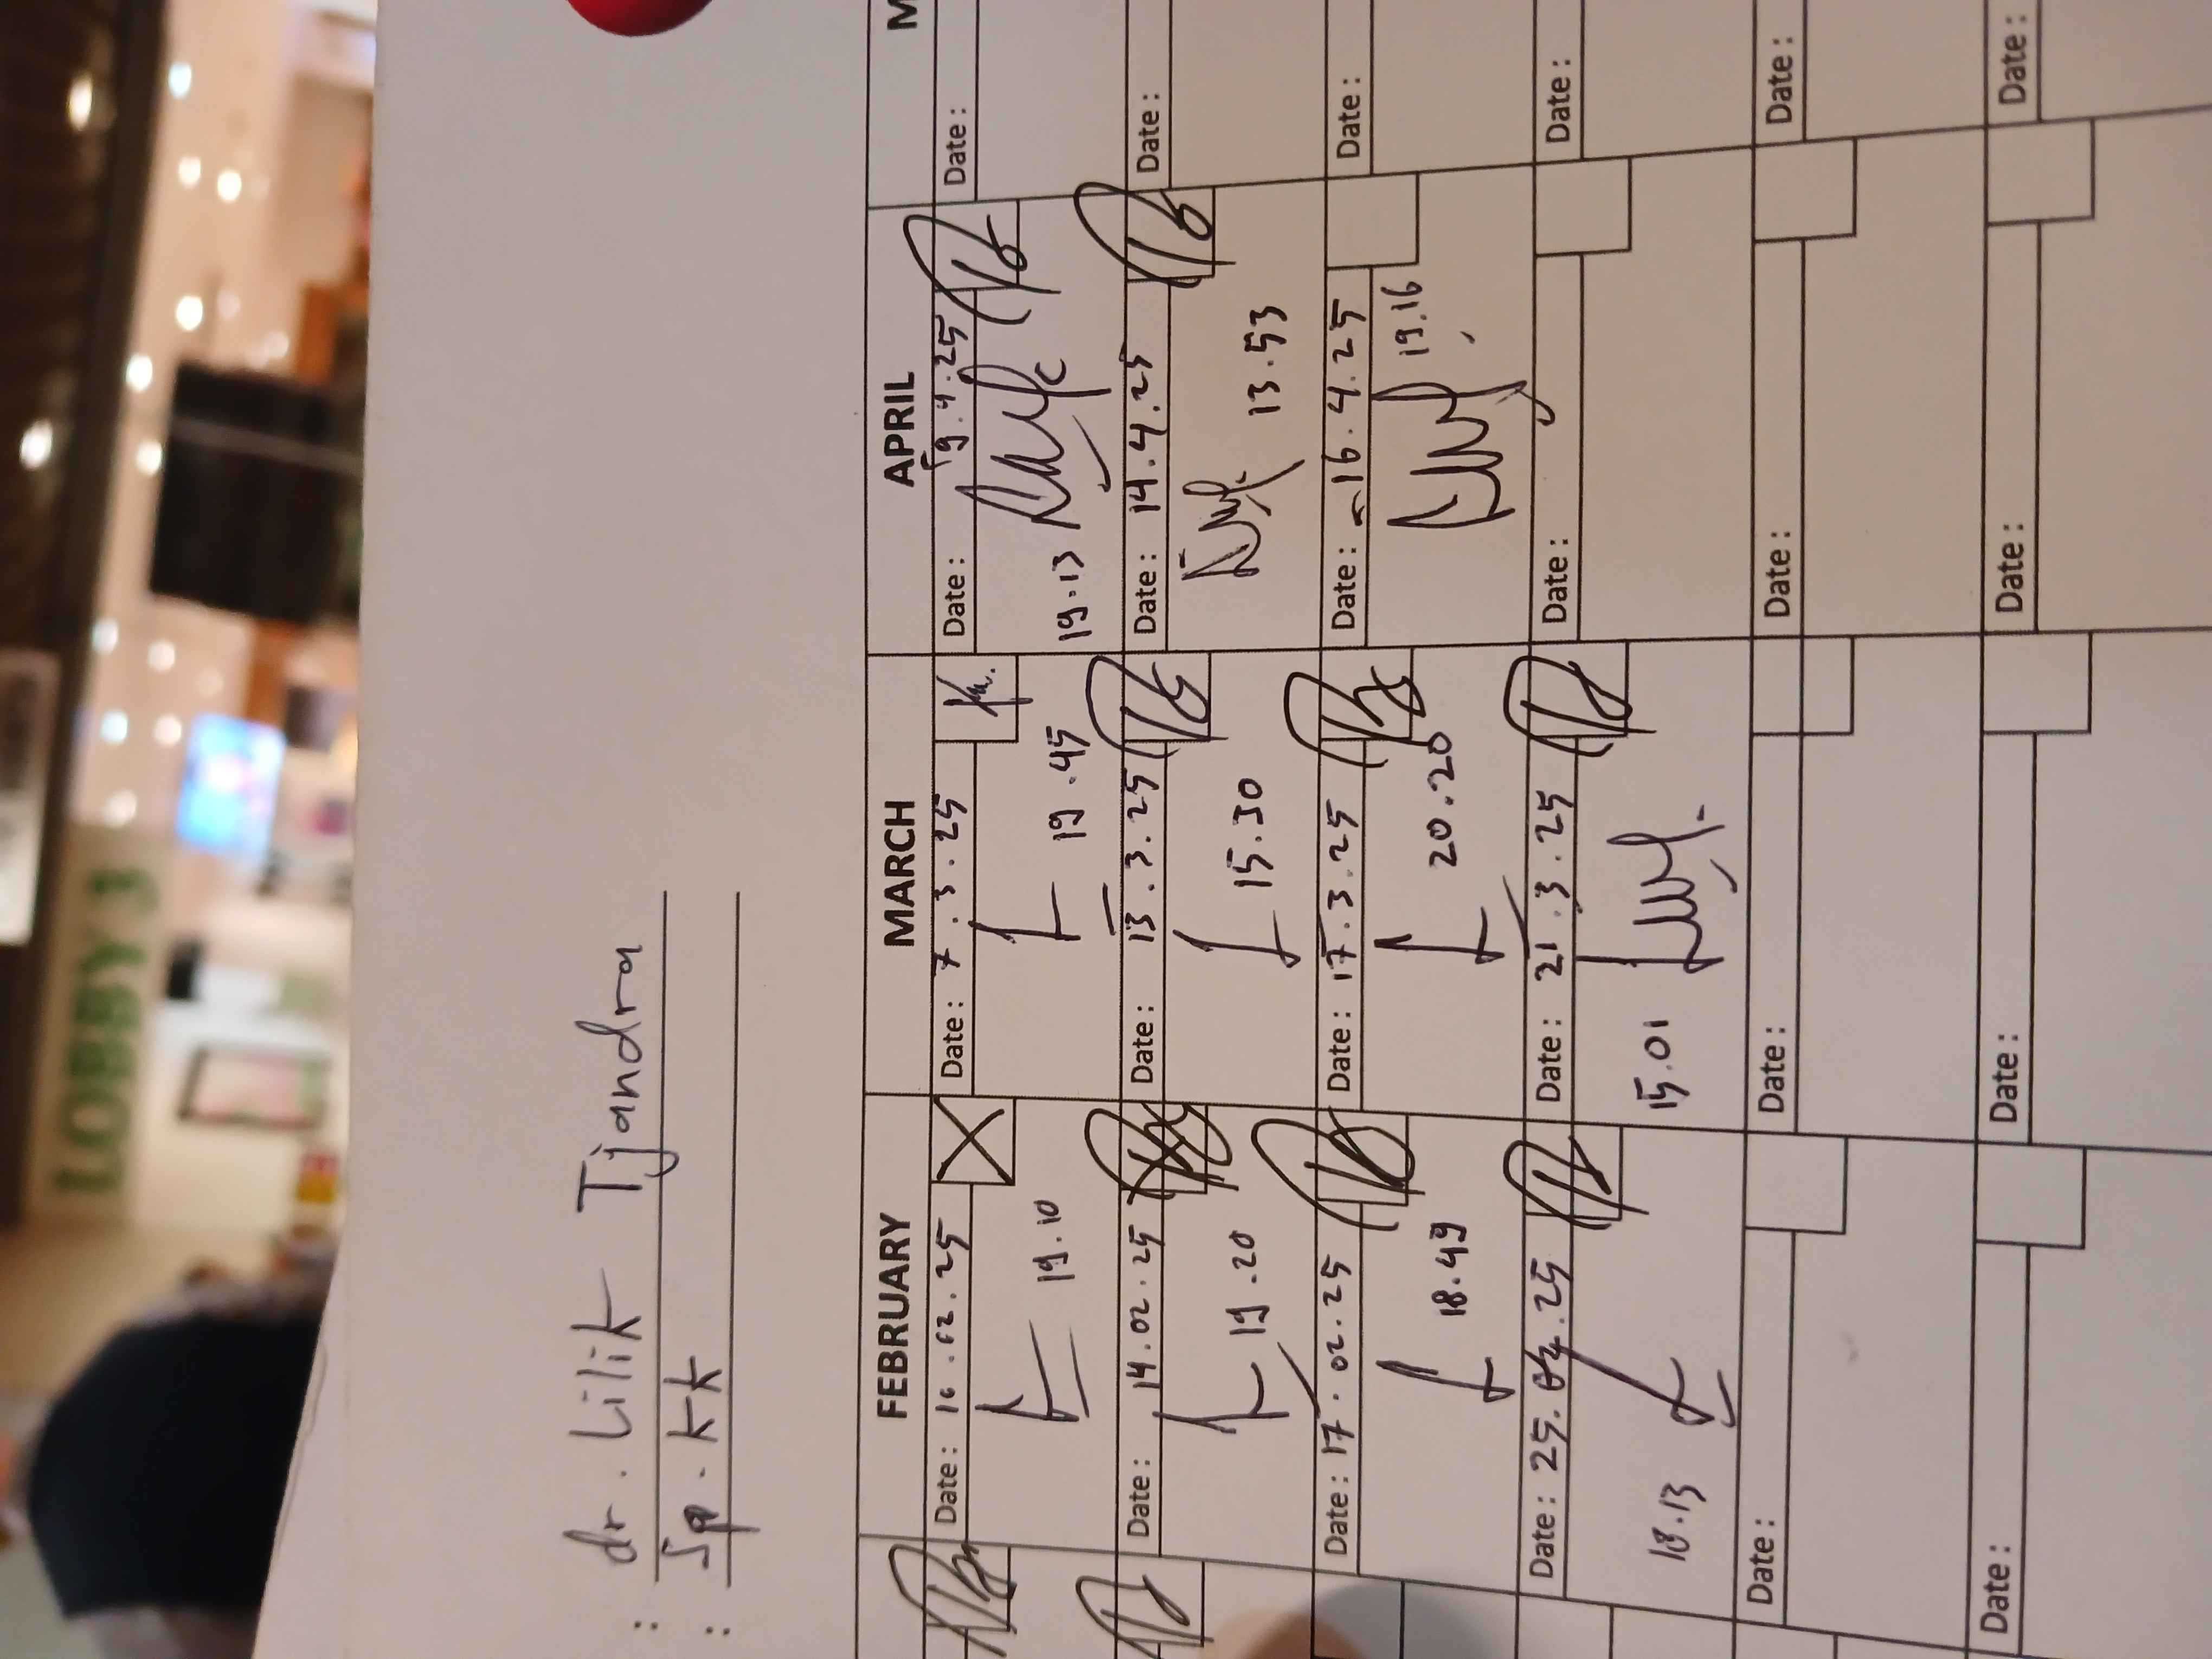 LOBBY 3
: dr. Lilik Tjandra
: Sp. KK
FEBRUARY MARCH APRIL M
Date: 10.02.25 Date: 7.3.25 Date: 9.4.25 Date:
19.10 19.45 19.13
Date: 14.02.25 Date: 13.3.25 Date: 14.4.25 Date:
19.20 15.30 13.53
Date: 17.02.25 Date: 17.3.25 Date: 16.4.25 Date:
18.49 20.20 19.16
Date: 25.02.25 Date: 21.3.25 Date: Date:
18.13 15.01
Date: Date: Date: Date:
Date: Date: Date: Date: